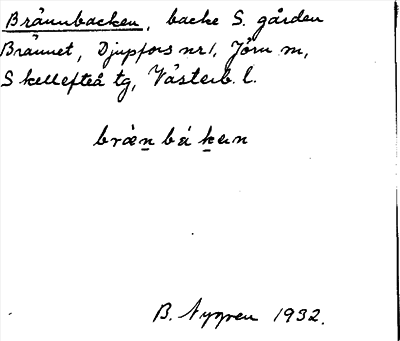 Brännbacken, backe S. gården
Brännet, Djupfors nr 1, Jörn sn,
Skellefteå tg, Västerb. l.
bränbákan
B. Nygren 1932.